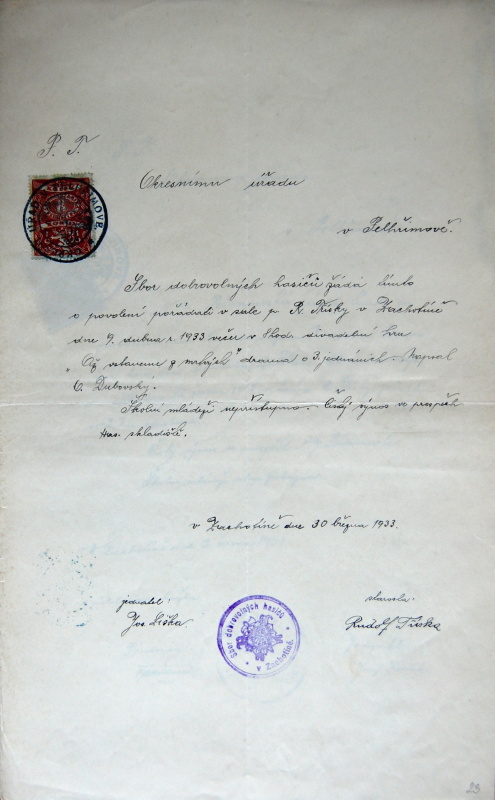 P. T.
Okresnímu úřadu
v Pelhřimově.
Sbor dobrovolných hasičů žádá tímto
o povolení pořádati v sále p. R. Třísky v Zachotíně
dne 9. dubna r. 1933 večer v 8 hod. divadelní hru
„Až vstaneme z mrtvých" drama o 3. jednáních. Napsal
V. Dubovský.
Školní mládeži nepřístupno. – Čistý výnos ve prospěch
has. skladiště.
v Zachotíně dne 30 března 1933.
jednatel: starosta:
Jos. Liška Rudolf Tříska
Sbor dobrovolných hasičů
v Zachotíně
23